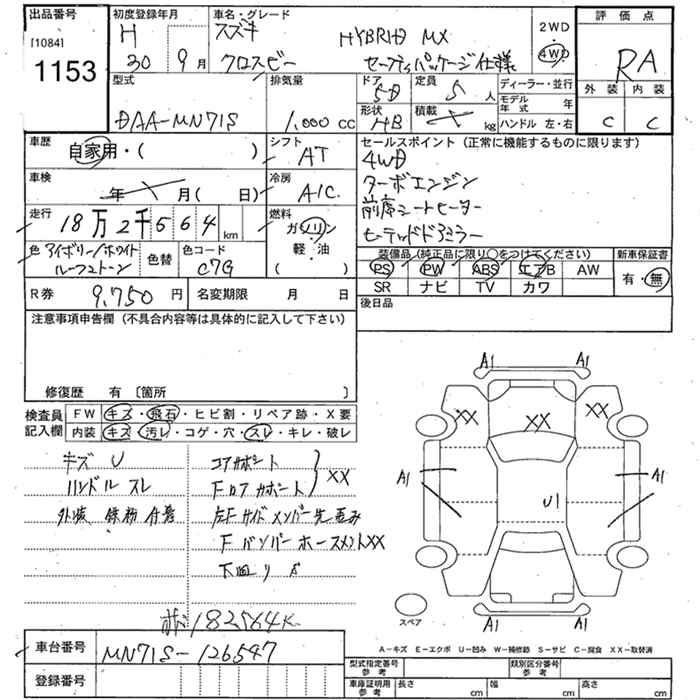 出品番号 初度登録年月 車名・グレード 評価点
[1084] H スズキ HYBRID MX 2WD
1153 30 9月 クロスビー セーフティパッケージ仕様 4WD RA
型式 排気量 ドア 定員 ディーラー・並行 外装 内装
5D 5人 モデル年式 年
DAA-MN71S 1,000 cc 形状 HB 積載 kg ハンドル 左・右 C C
車歴 自家用・( ) シフト AT セールスポイント (正常に機能するものに限ります)
4WD
車検 年 月( 日) 冷房 A/C ターボエンジン
走行 18万2千564 km 燃料 ガソリン 前席シートヒーター
軽・油 ヒーテッドドアミラー
色 アイボリー/ホワイト 色替 色コード ( ) 装備品 (純正品に限り○をつけてください) 新車保証書
ルーフ2トーン C7G PS PW ABS エアB AW 有・無
R券 9,750円 名変期限 月 日 SR ナビ TV カワ
注意事項申告欄 (不具合内容等は具体的に記入して下さい) 後日品
修復歴 有 〔箇所 〕
検査員 FW キズ・飛石・ヒビ割・リペア跡・X要
記入欄 内装 キズ・汚レ・コゲ・穴・スレ・キレ・破レ
A1 A1
XX XX XX
キズ U コアサポート
ハンドル スレ Fロアサポート XX
A1 A1
外装 鉄粉付着 左Fサイドメンバー先歪み
U1
Fバンパーホースメント XX
下回り S
182564K
スペア A1 A1
車台番号 MN71S-126547
A-キズ E-エクボ U-凹み W-補修跡 S-サビ C-腐食 XX-取替済
登録番号 型式指定番号 参考 類別区分番号 参考
車庫証明用 参考 長さ cm 幅 cm 高さ cm